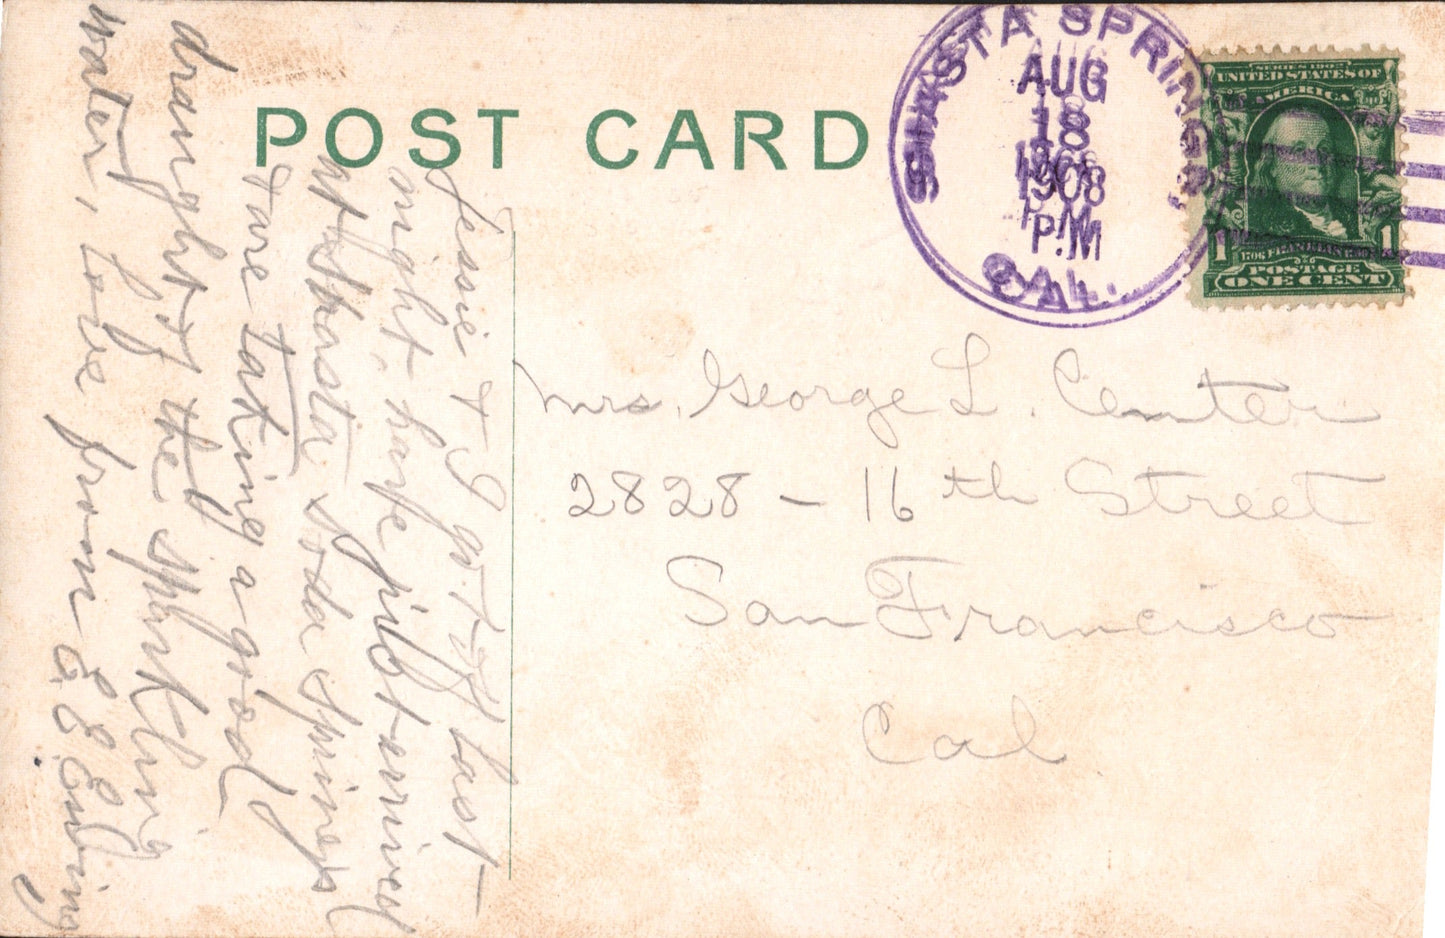 POST CARD
SHASTA SPRINGS
AUG
18
1908
P.M
CAL.
SERIES 1902
UNITED STATES OF
AMERICA
1 1
1706 FRANKLIN 1790
POSTAGE
ONE CENT
Jessie & I got off last
night, have just arrived
at Shasta soda springs
& are taking a good
draught of the sparkling
water, love from E. E. Ewing
Mrs. George L. Center
2828 - 16th Street
San Francisco
Cal